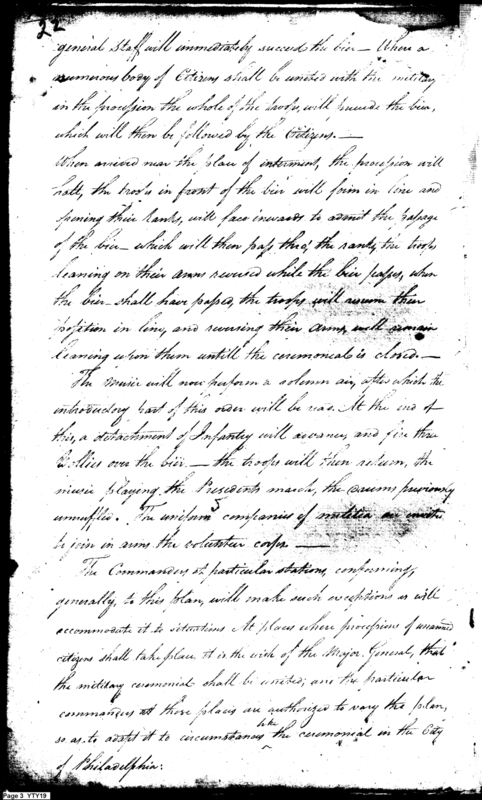 22
general Staff will immediately succeed the bier — When a
numerous body of Citizens shall be united with the military
in the procession the whole of the troops, will precede the bier,
which will then be followed by the Citizens. —
When arrived near the place of interment, the procession will
halt, the troops in front of the bier will form in line and
opening their ranks, will face inwards to admit the passage
of the bier — which will then pass thro' the ranks, the troops
leaning on their arms reversed while the bier passes, when
the bier shall have passed, the troops will resume their
position in line, and reversing their arms, will remain
leaning upon them untill the ceremonial is closed. —
The music will now perform a solemn air, after which the
introductory part of this order will be read. At the end of
this, a detachment of Infantry will advance, and fire three
Vollies over the bier. — the troops will then return, the
music playing the Presidents march, the drums previously
unmuffled. The uniform companies of militia are invited
to join in arms the volunteer corps —
The Commanders at particular stations, conforming,
generally, to this plan, will make such exceptions as will
accommodate it to situations At places where processions of unarmed
citizens shall take place it is the wish of the Major General, that
the military ceremonial shall be united; and the particular
commanders at those places are authorized to vary the plan,
so as to adapt it to circumstances the ceremonial in the City
of Philadelphia:
Page 3 YTY19